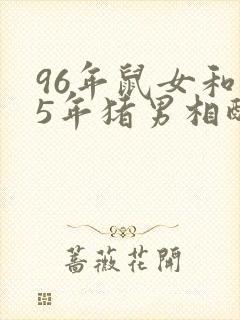 96年鼠女和
5年猪男相
蔷薇花開